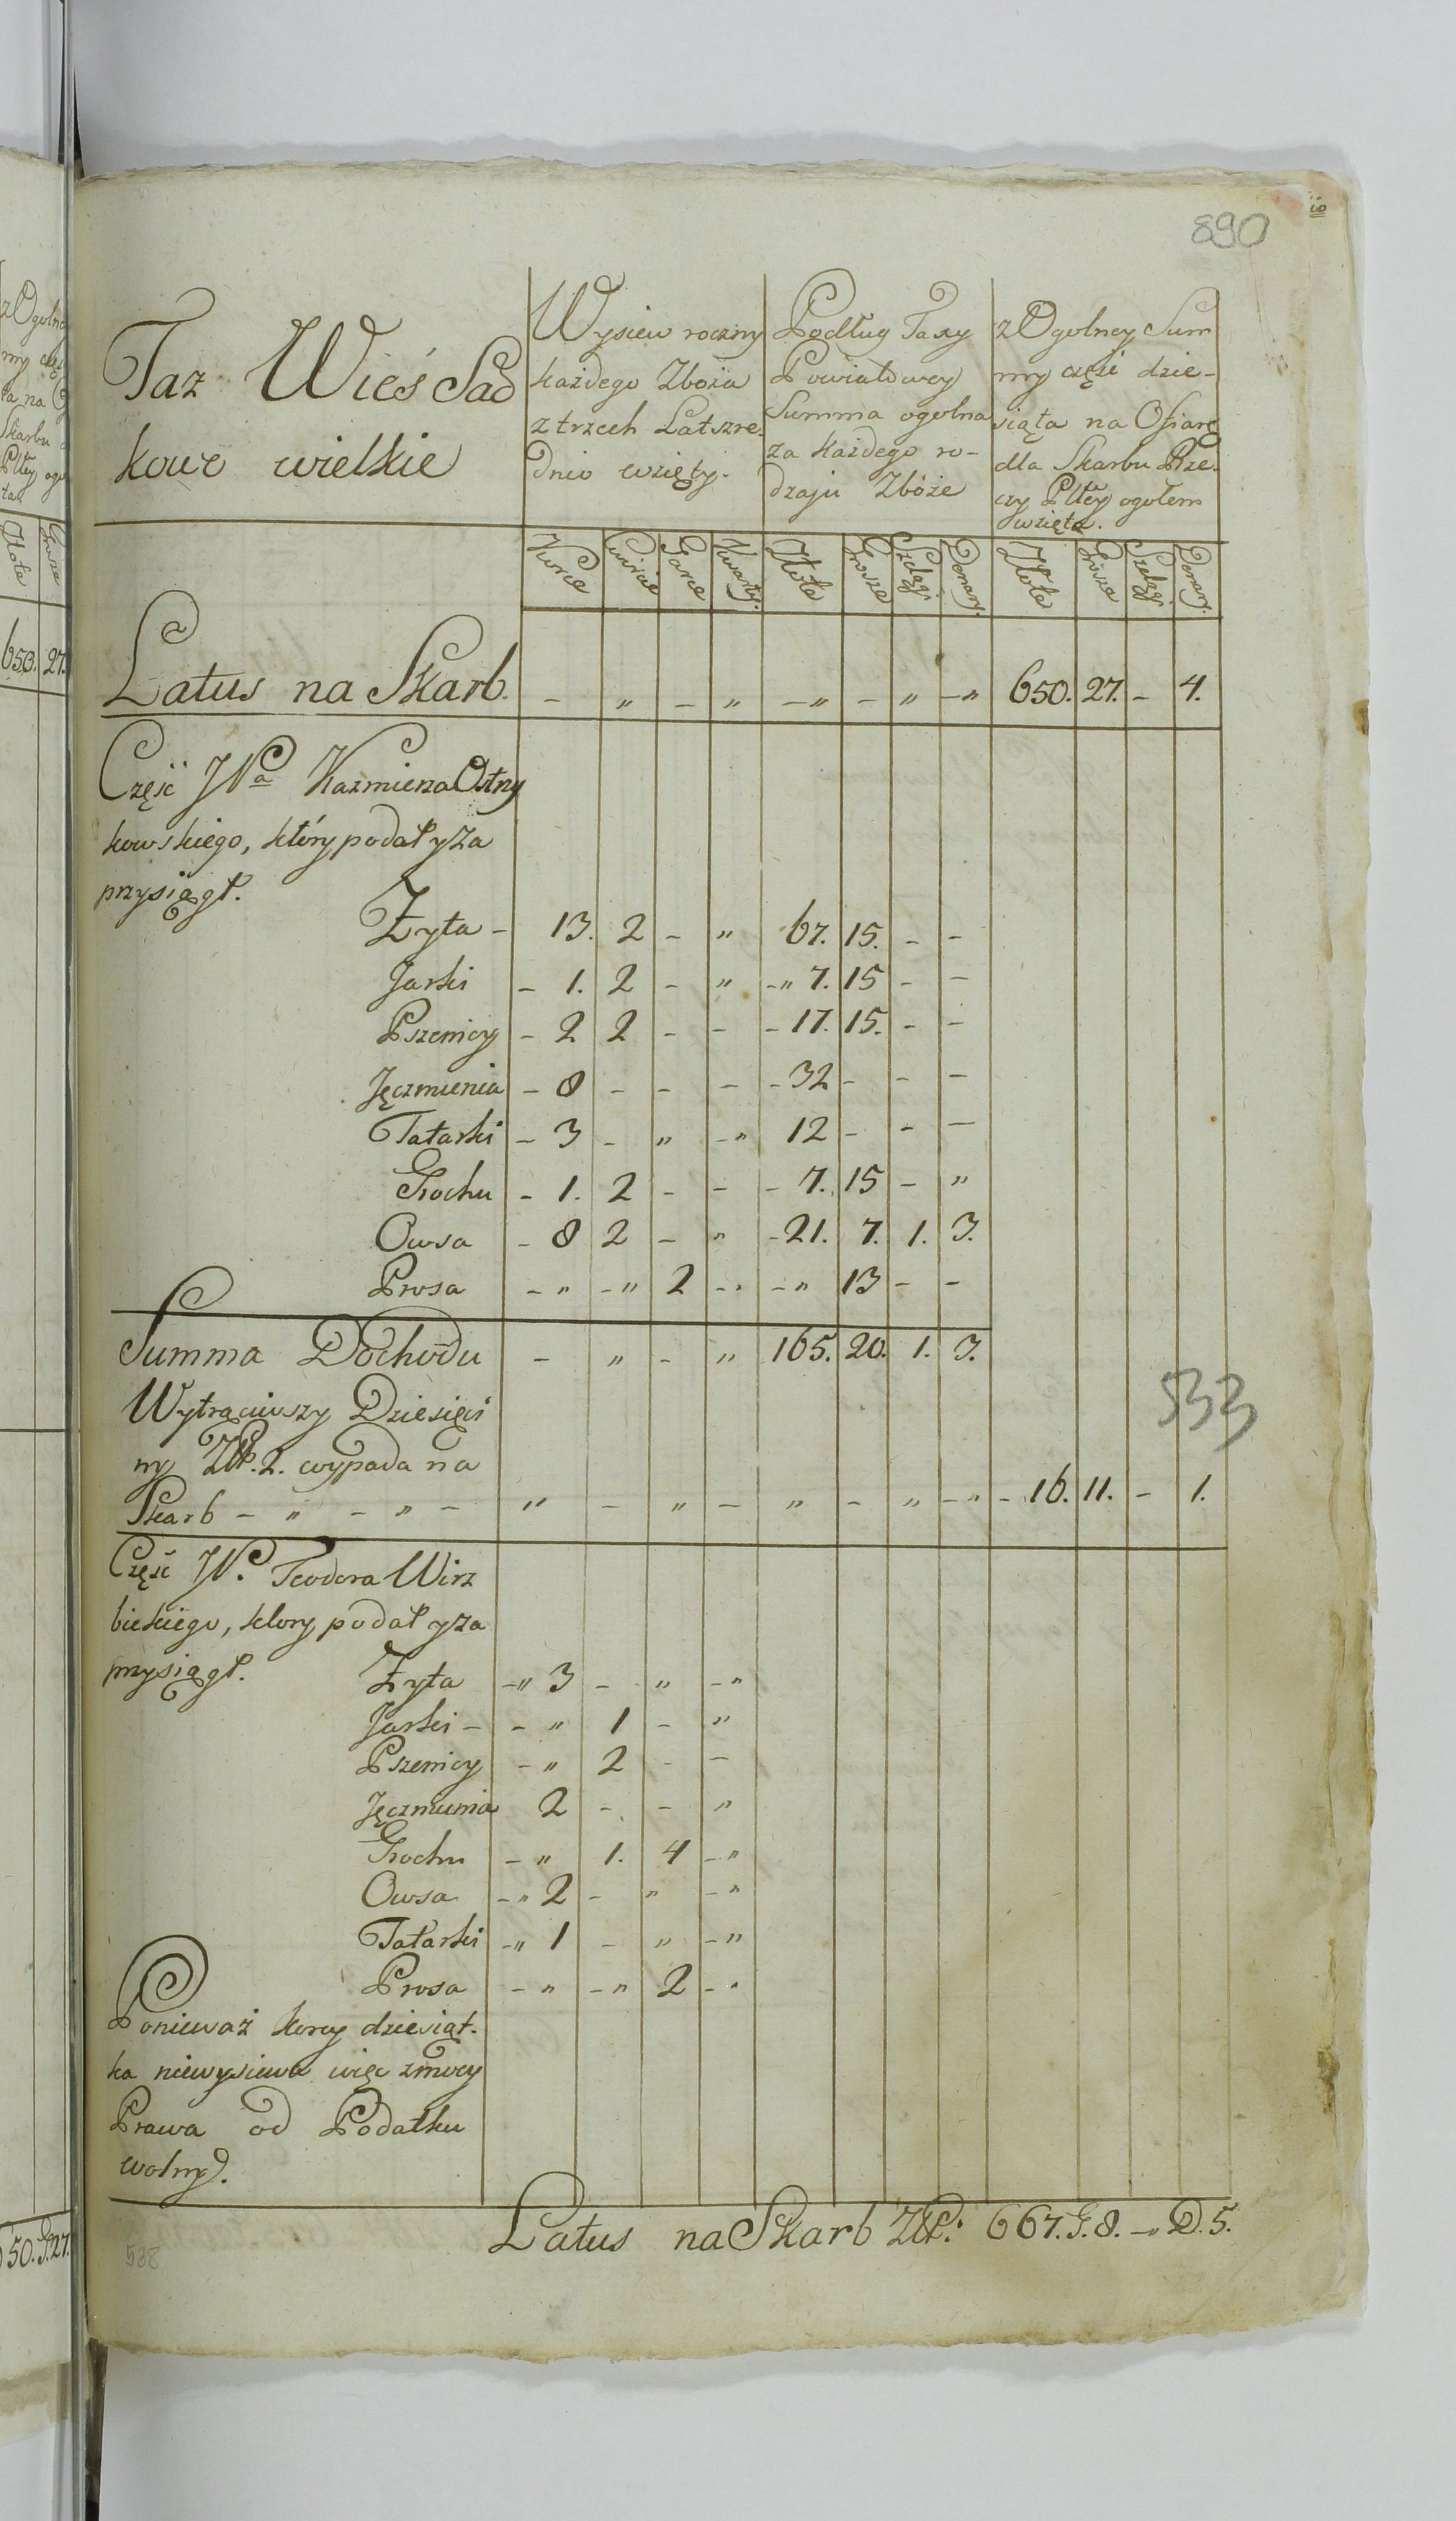 890
Taz Wieś Sad
kowe wielkie
Wysiew roczny
każdego Zboża
z trzech Lat szre-
dnio wzięty.
Podług Taxy
Powiatowey
Summa ogolna
za każdego ro-
dzaju Zboże
z Ogolney Sum
my częśi dzie-
siąta na Ofiarę
dla Skarbu Rze-
czy Pltey ogołem
wzięta.
Korce Cwierci Garce Kwarty. Złote Grosze Szelągi Denary. Złote Grosze Szelągi Denary.
Latus na Skarb. - " - " - " - " - " 650. 27. - 4.
Część JPa Kazmierza Ostrzy
kowskiego, który podał y za
przysiągł.
Żyta - 13. 2 - " 67. 15. - -
Jarki - 1. 2 - " - " 7. 15 - -
Pszenicy - 2 2 - - - 17. 15. - -
Jęczmienia - 8 - - - - 32 - - -
Tatarki - 3 - " - " 12 - - -
Grochu - 1. 2 - - - 7. 15 - "
Owsa - 8 2 - " - 21. 7. 1. 3.
Prosa - " - " 2 - " - " 13 - -
Summa Dochodu - " - " 165. 20. 1. 3.
Wytrąciwszy Dziesięci
ny ZłP. 2. wypada na
Skarb - " - " - " - " - " - " - " - 16. 11. - 1.
533
Część JP. Teodora Wirz
bickiego, ktory podał y za
przysiągł.
Żyta - " 3 - " - "
Jarki - - " 1 - "
Pszenicy - " 2 - -
Jęczmienia 2 - - "
Grochu - " 1. 4 - "
Owsa - " 2 - " - "
Tatarki - " 1 - " - "
Prosa - " - " 2 - "
Ponieważ korcy dziesiąt-
ka niewysiewa więc z mocy
Prawa od Podatku
wolny.
Latus na Skarb ZłP. 667. G. 8. - " D. 5.
538